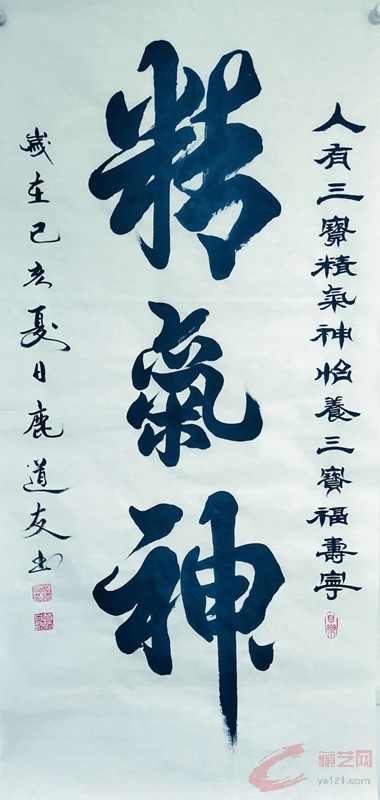 人有三寳精氣神怡養三寳福壽寧
精氣神
歲在己亥夏日鹿道友書
藏艺网
ys121.com